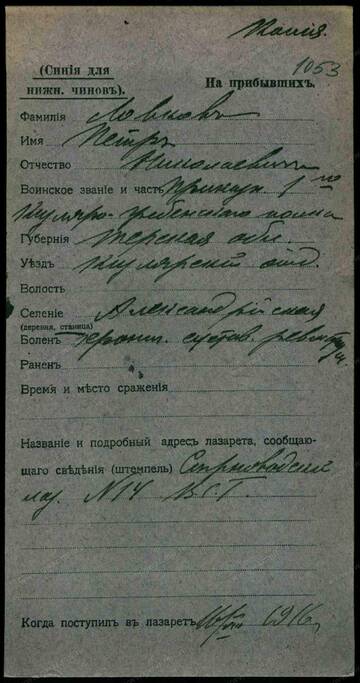 Копія.
1053
(Синія для
нижн. чиновъ).
На прибывшихъ.
Фамилія Ловковъ
Имя Петръ
Отчество Николаевичъ
Воинское званіе и часть Приказн. 1го
Кизляро-Гребенского полка
Губернія Терская обл.
Уѣздъ Кизлярскій отд.
Волость
Селеніе Александрійская
(деревня, станица)
Боленъ хронич. сустав. ревмат.
Раненъ
Время и мѣсто сраженія
Названіе и подробный адресъ лазарета, сообщаю-
щаго свѣдѣнія (штемпель) Сѣрноводскій
лаз. N14 В.С.Г.
Когда поступилъ въ лазаретъ 1916